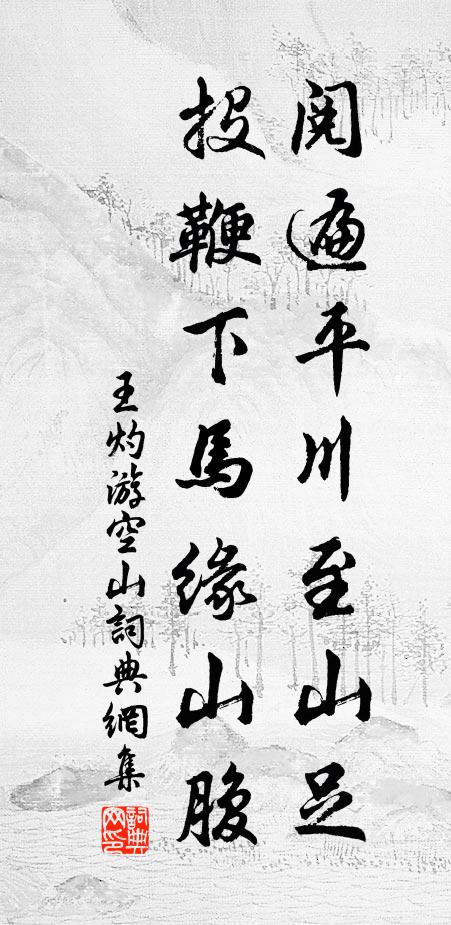 閱遍平川至山足
投鞭下馬緣山腹
王灼游空山詞典網集
詞典網印